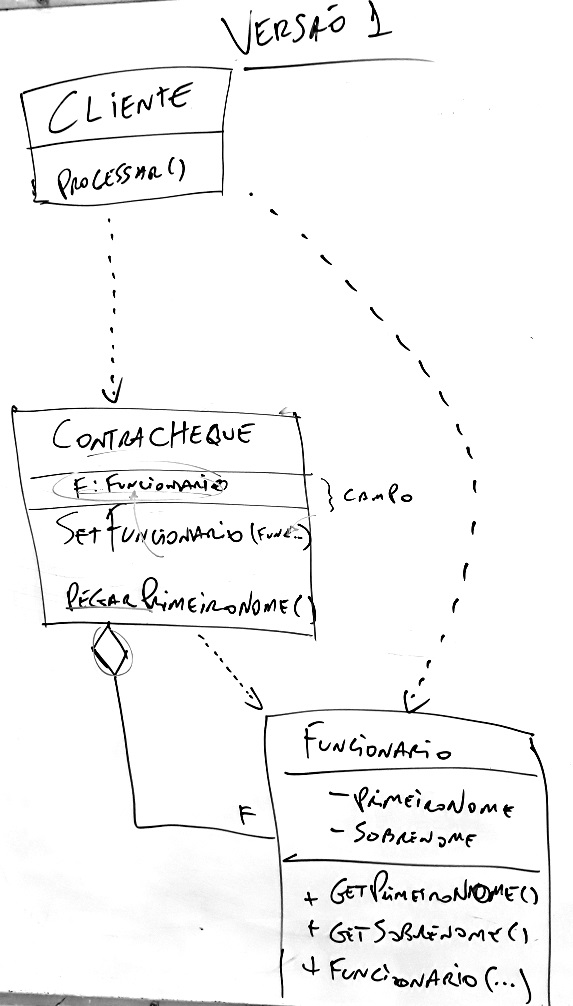 VERSÃO 1
CLIENTE
PROCESSAR()
CONTRACHEQUE
F: FUNCIONARIO
} CAMPO
SET FUNCIONARIO (FUNC...)
PEGAR PRIMEIRO NOME()
F
FUNCIONARIO
- PRIMEIRONOME
- SOBRENOME
+ GETPRIMEIRONOME()
+ GETSOBRENOME()
+ FUNCIONARIO(...)